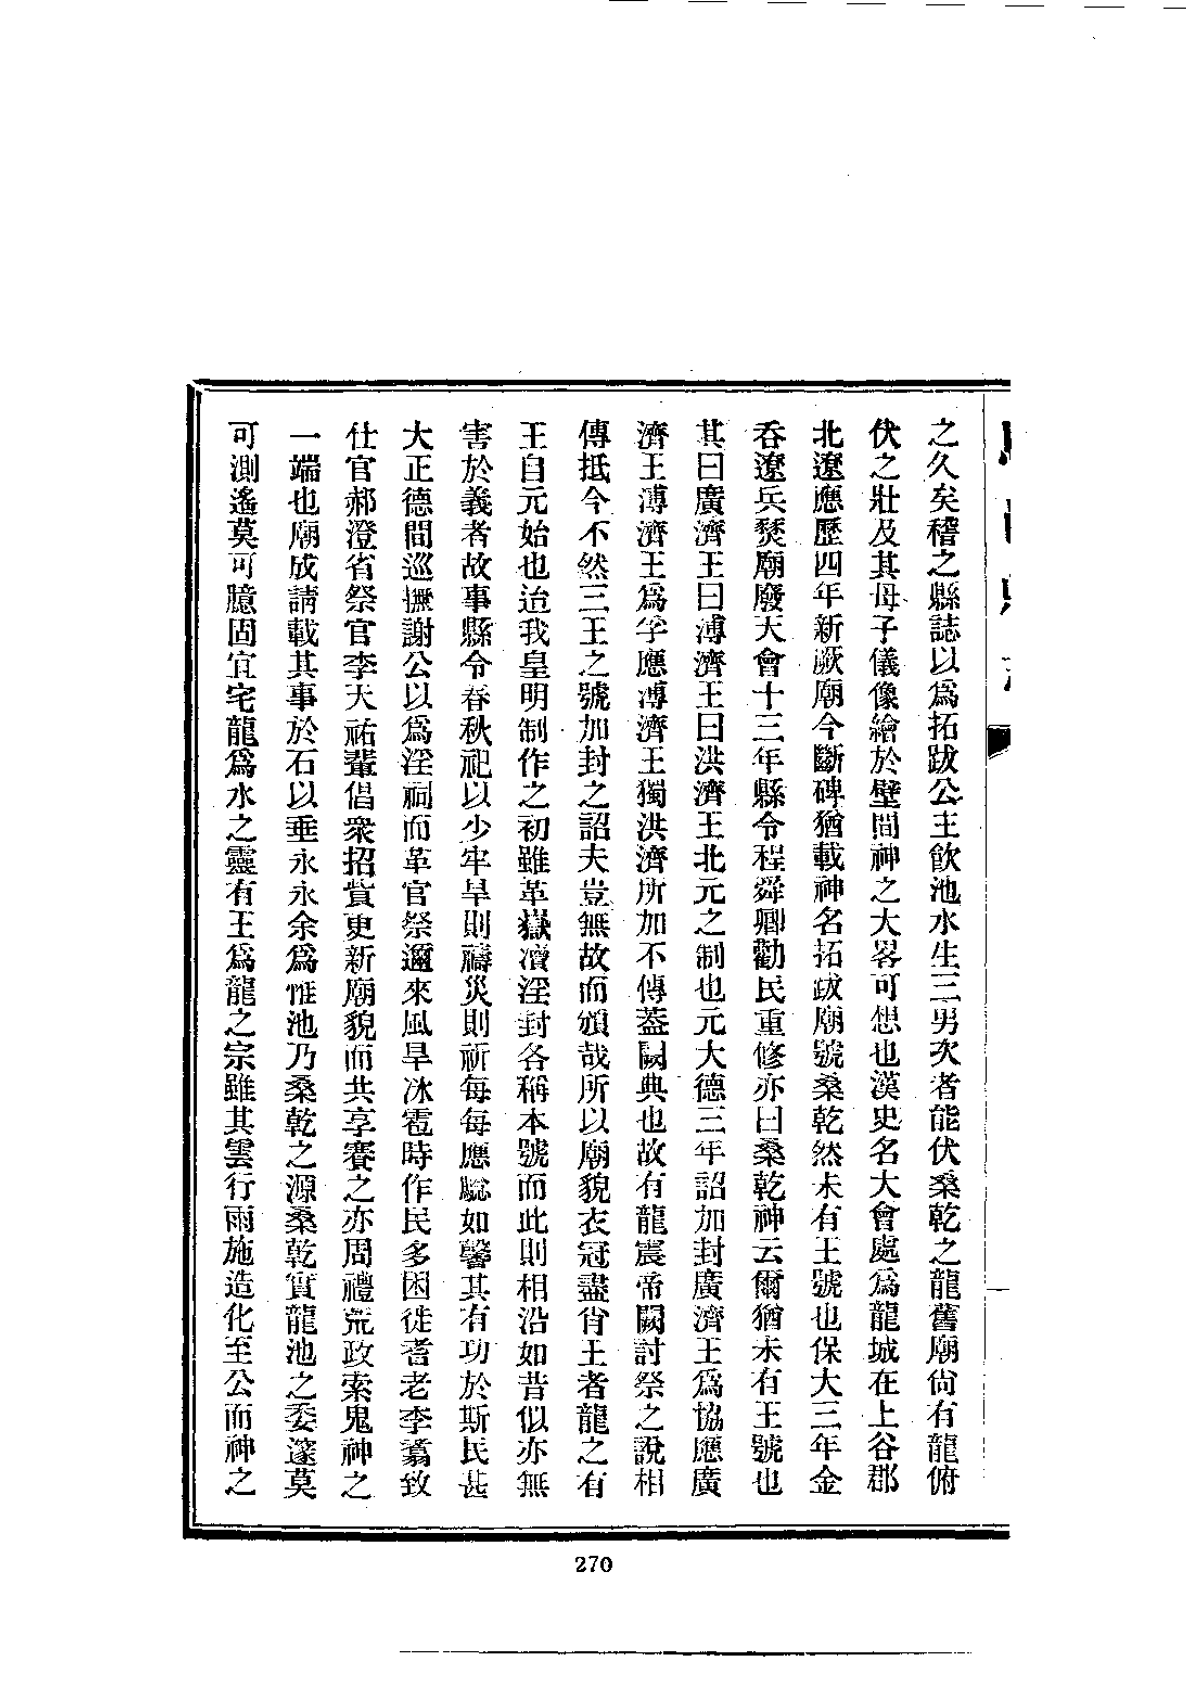 之久矣稽之縣誌以爲拓跋公主飮池水生三男次者能伏桑乾之龍舊廟尙有龍俯
伏之壯及其母子儀像繪於壁間神之大畧可想也漢史名大會處爲龍城在上谷郡
北遼應歷四年新厥廟今斷碑猶載神名拓跋廟號桑乾然未有王號也保大三年金
呑遼兵燹廟廢天會十三年縣令程舜卿勸民重修亦曰桑乾神云爾猶未有王號也
其曰廣濟王曰溥濟王曰洪濟王北元之制也元大德三年詔加封廣濟王爲協應廣
濟王溥濟王爲孚應溥濟王獨洪濟所加不傳葢闕典也故有龍震帝闕討祭之說相
傳抵今不然三王之號加封之詔夫豈無故而頒哉所以廟貌衣冠盡肖王者龍之有
王自元始也迨我皇明制作之初雖革嶽瀆淫封各稱本號而此則相沿如昔似亦無
害於義者故事縣令春秋祀以少牢旱則禱災則祈每每應騐如馨其有功於斯民甚
大正德間巡撫謝公以爲淫祠而革官祭邇來風旱冰雹時作民多困徙耆老李翥致
仕官郝澄省祭官李天祐輩倡衆招貲更新廟貌而共享賽之亦周禮荒政索鬼神之
一端也廟成請載其事於石以垂永永余爲惟池乃桑乾之源桑乾實龍池之委邃莫
可測遙莫可臆固宜宅龍爲水之靈有王爲龍之宗雖其雲行雨施造化至公而神之
270